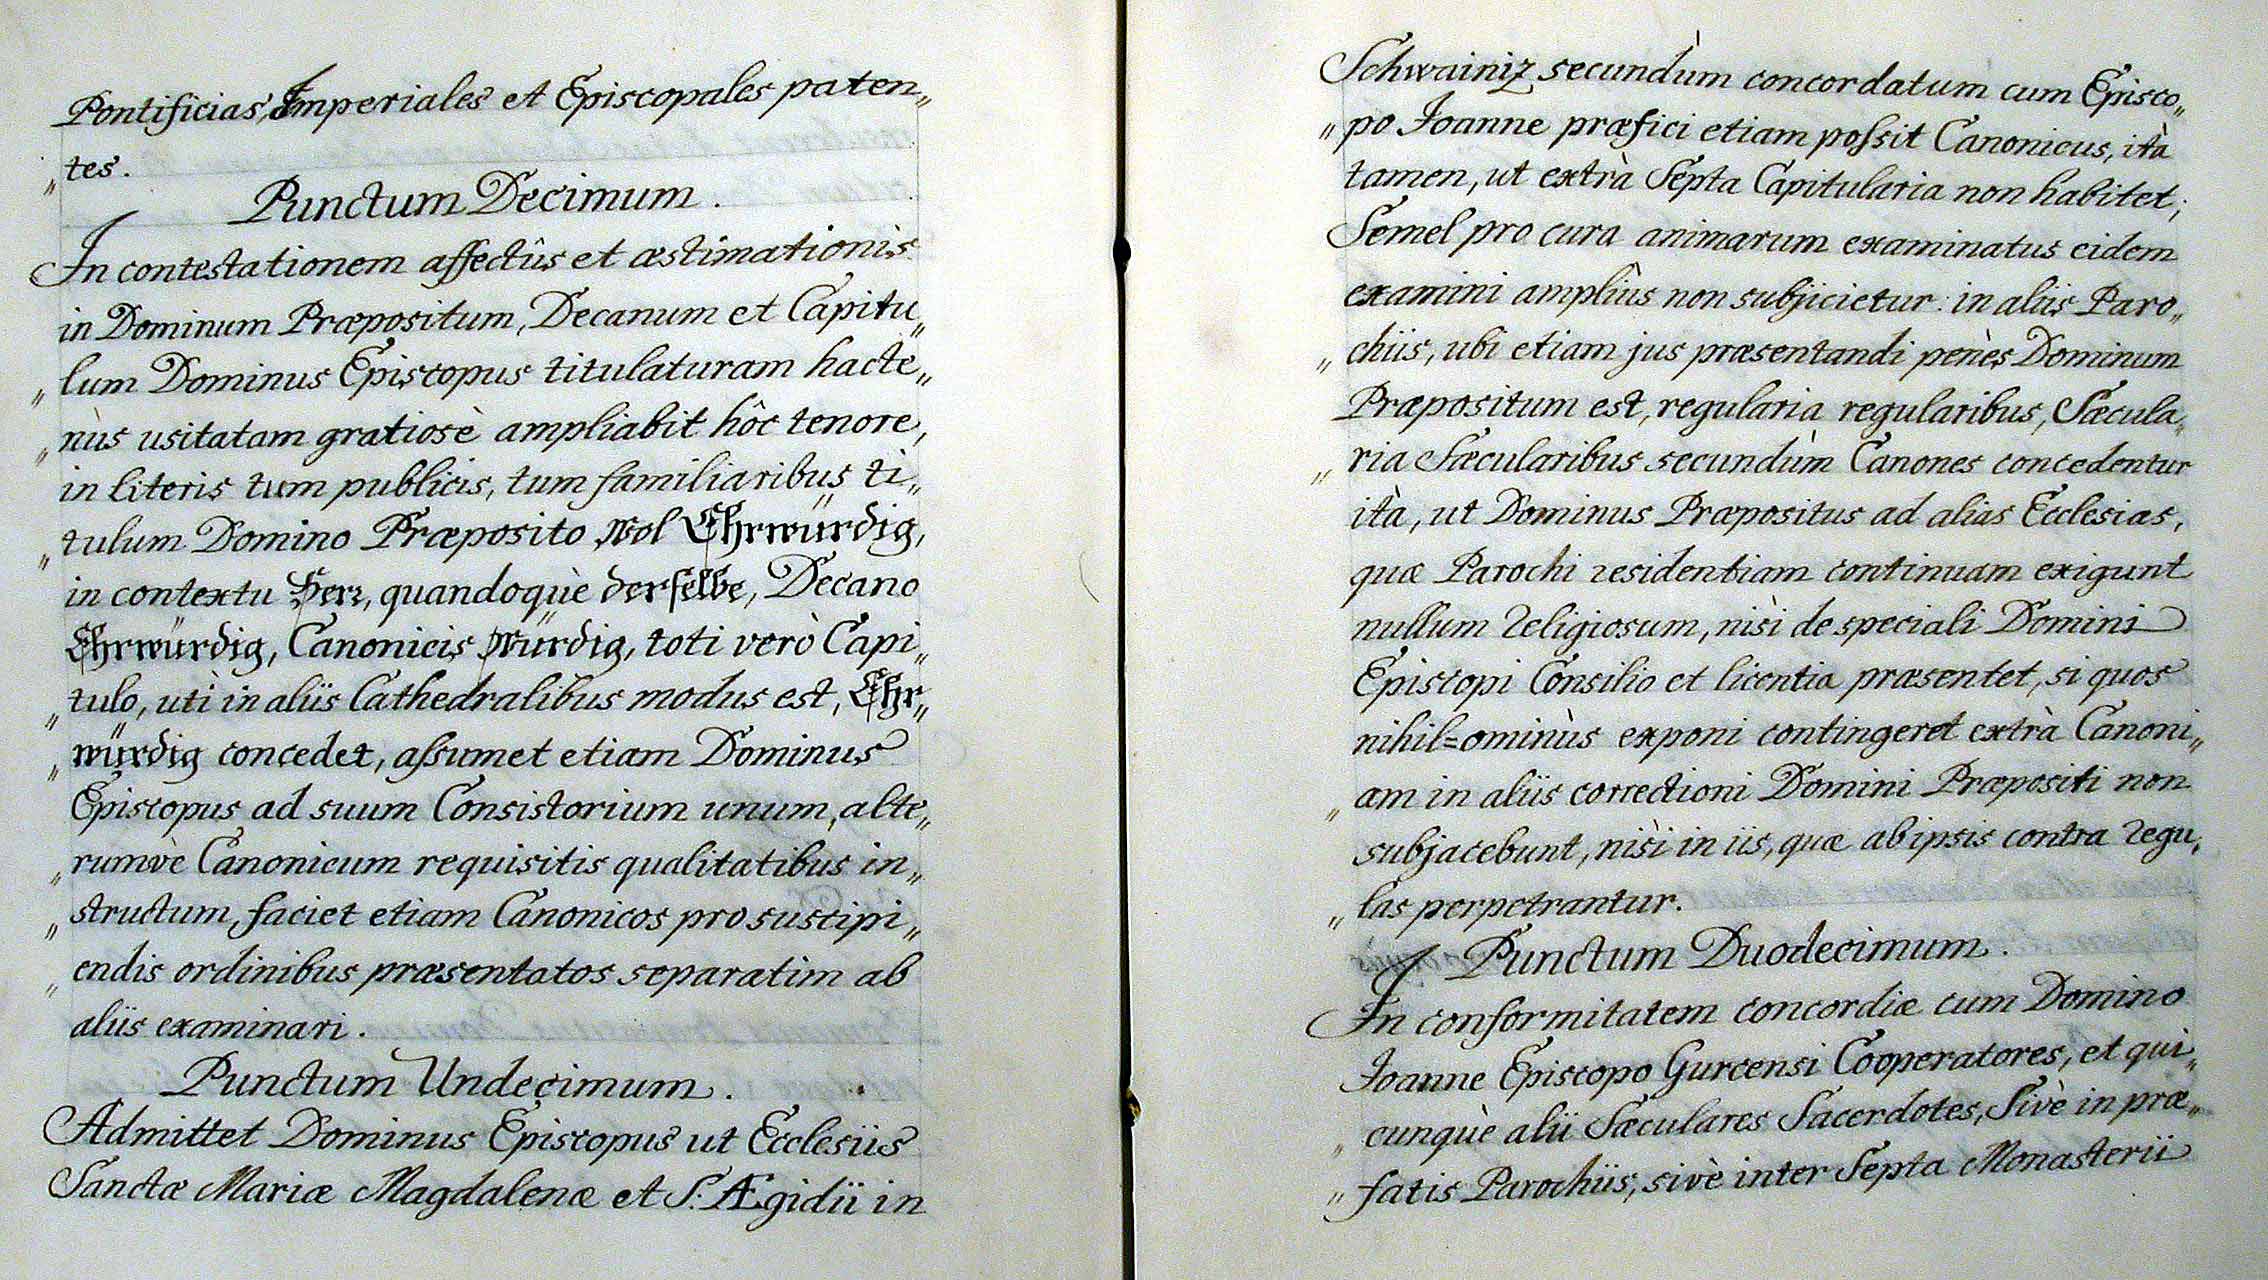 Pontificias, Imperiales et Episcopales paten„
„tes.
Punctum Decimum.
In contestationem affectûs et æstimationis
in Dominum Præpositum, Decanum et Capitu„
„lum Dominus Episcopus titulaturam hacte„
„nùs usitatam gratiosè ampliabit hôc tenore,
in literis tum publicis, tum familiaribus ti„
„tulum Domino Præposito Wol Ehrwürdig,
in contextu Herr, quandoquè derselbe, Decano
Ehrwürdig, Canonicis Würdig, toti verò Capi„
„tulo, utì in aliis Cathedralibus modus est, Ehr„
„würdig concedet, assumet etiam Dominus
Episcopus ad suum Consistorium unum, alte„
„rumvè Canonicum requisitis qualitatibus in„
„structum, faciet etiam Canonicos pro suscipi„
„endis ordinibus præsentatos separatim ab
aliis examinari.
Punctum Undecimum.
Admittet Dominus Episcopus ut Ecclesiis
Sanctæ Mariæ Magdalenæ et S. Ægidii in
Schwainiz secundùm concordatum cum Episco„
„po Joanne præfici etiam possit Canonicus, ità
tamen, ut extrà Septa Capitularia non habitet;
Semel pro cura animarum examinatus eidem
examini ampliùs non subjicietur: in aliis Paro„
„chiis, ubi etiam jus præsentandi penès Dominum
Præpositum est, regularia regularibus, Sæcula„
„ria Sæcularibus secundùm Canones concedentur
ità, ut Dominus Præpositus ad alias Ecclesias,
quæ Parochi residentiam continuam exigunt
nullum Religiosum, nisì de speciali Domini
Episcopi Consilio et licentia præsentet, si quos
nihil=ominùs exponi contingeret extrà Canoni„
„am in aliis correctioni Domini Præpositi non
subjacebunt, nisì in iis, quæ ab ipsis contra regu„
„las perpetrantur.
Punctum Duodecimum.
In conformitatem concordiæ cum Domino
Joanne Episcopo Gurcensi Cooperatores, et qui„
„cunquè alii Sæculares Sacerdotes, Sivè in præ„
„fatis Parochiis, sivè inter Septa Monasterii